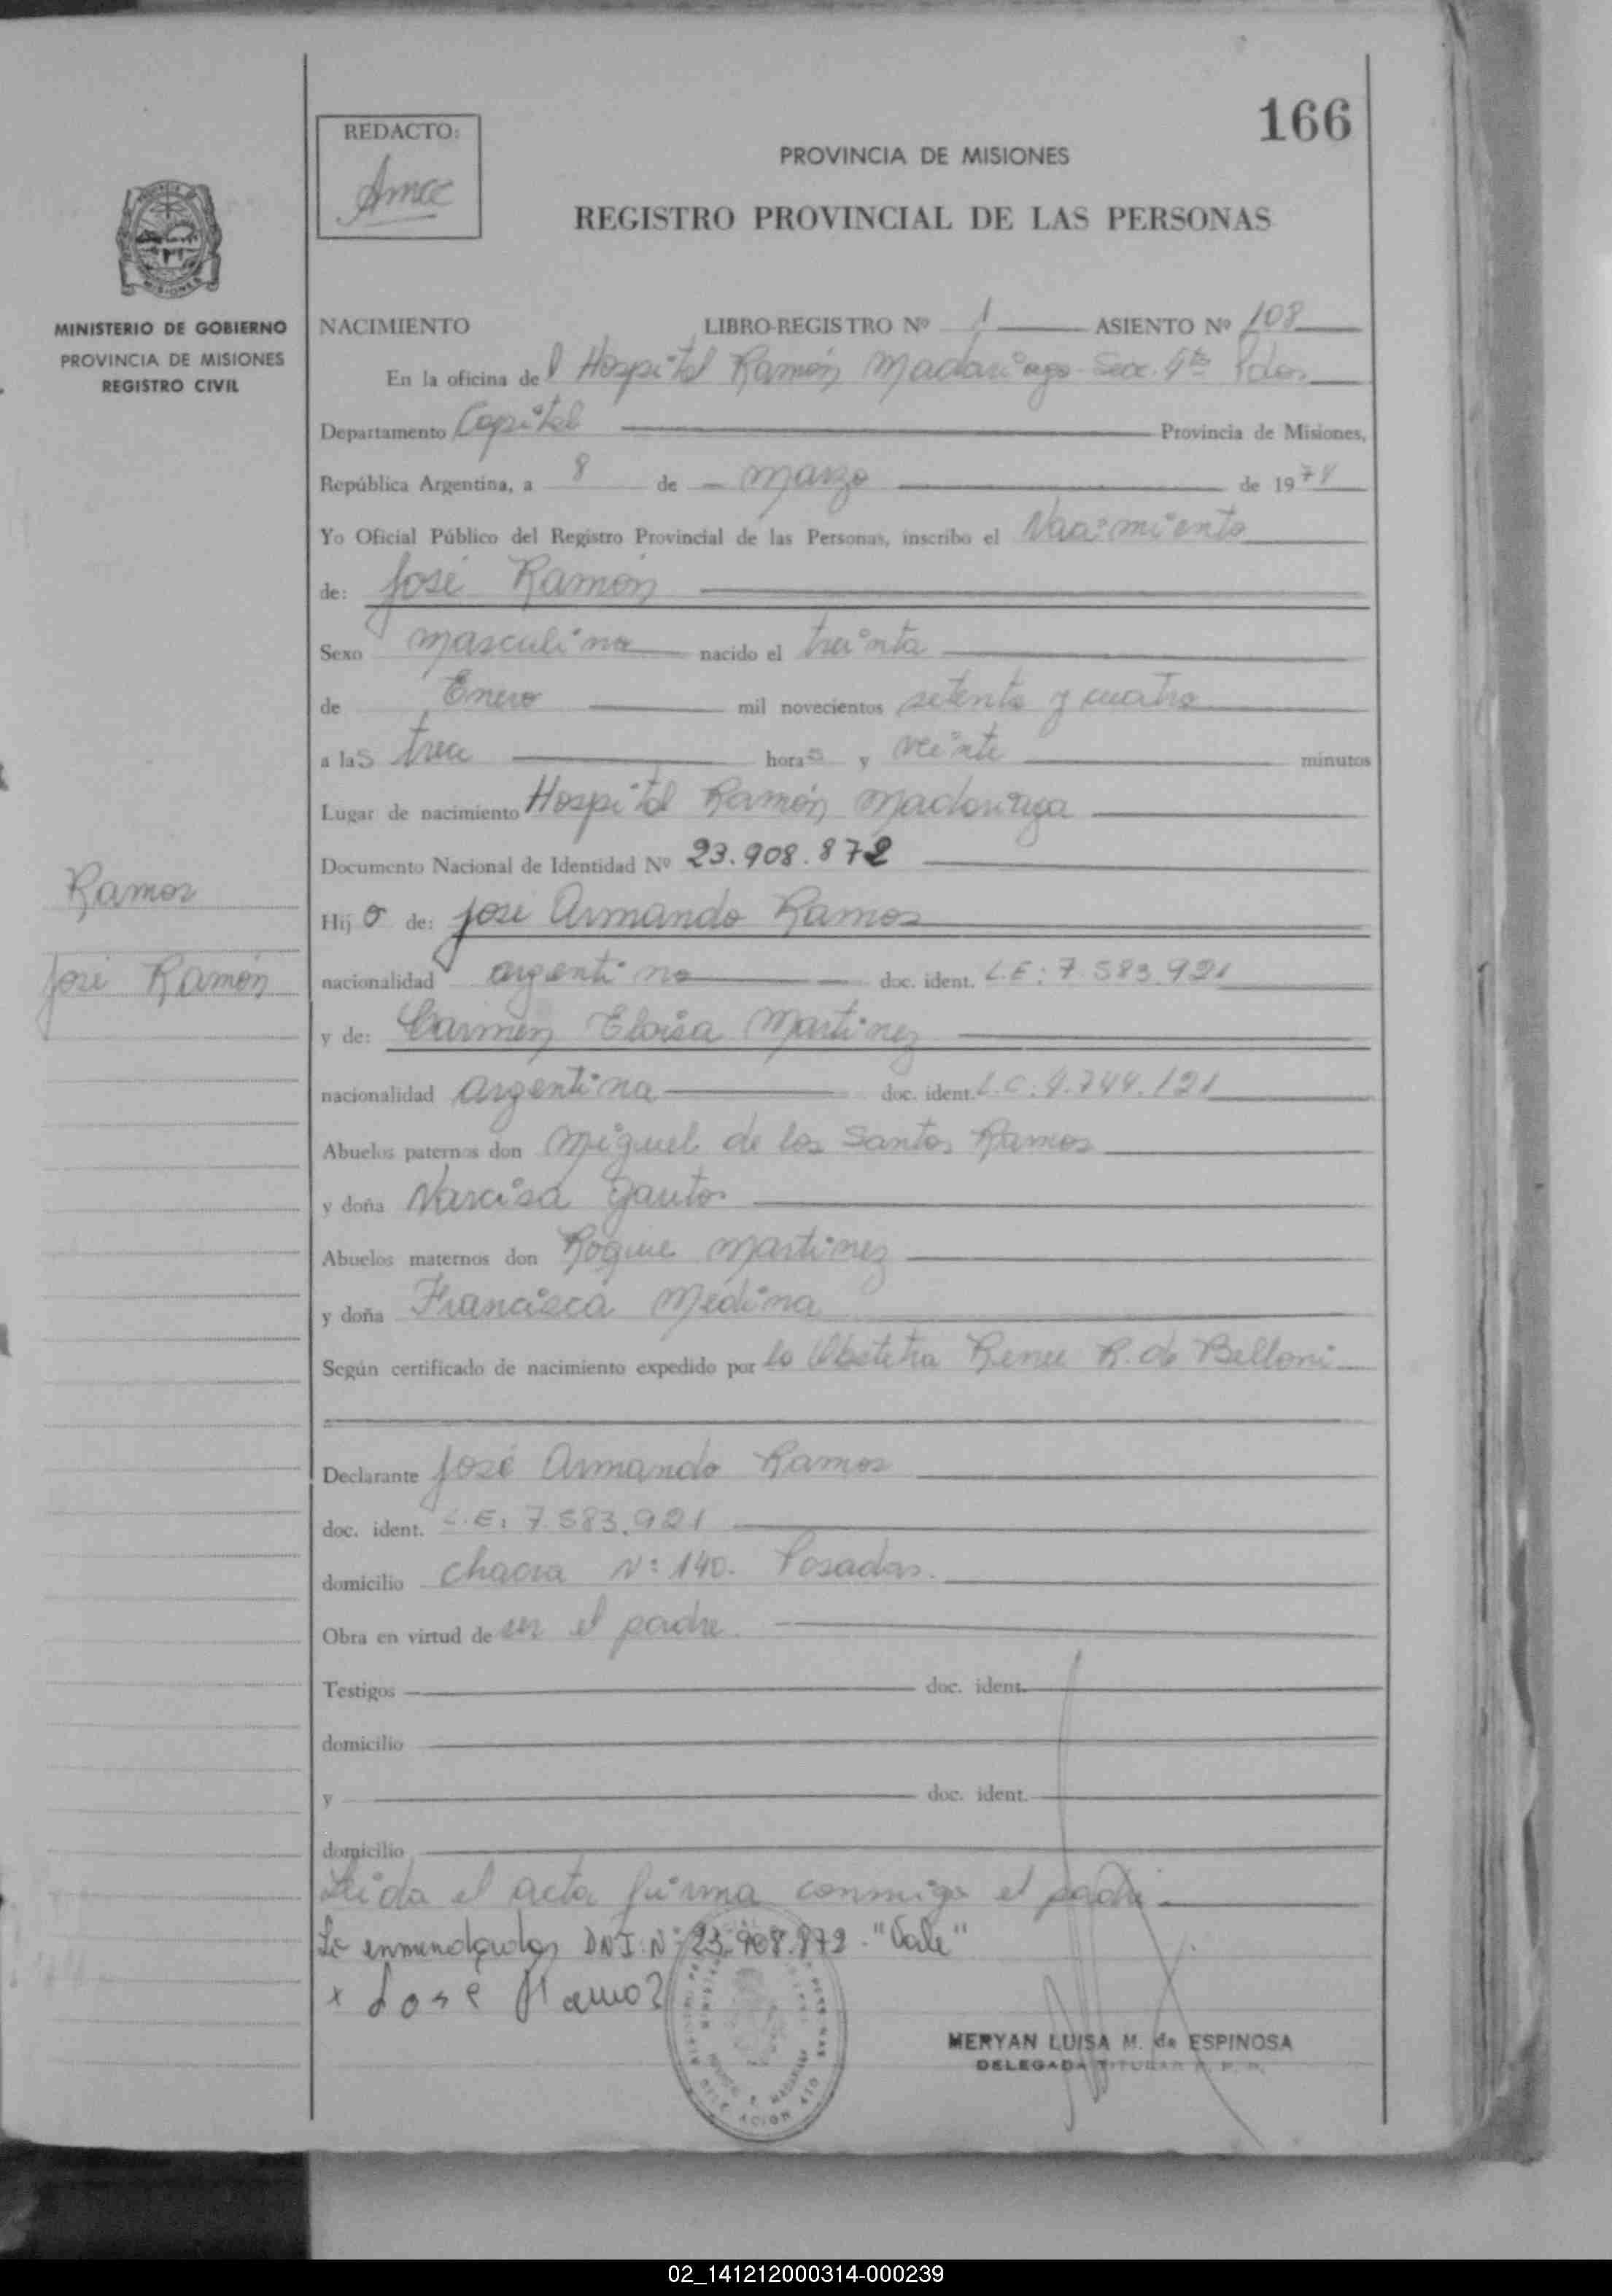 166
REDACTO:
PROVINCIA DE MISIONES
REGISTRO PROVINCIAL DE LAS PERSONAS
MINISTERIO DE GOBIERNO
PROVINCIA DE MISIONES
REGISTRO CIVIL
NACIMIENTO LIBRO-REGISTRO Nº 1 ASIENTO Nº 108
En la oficina del Hospital Ramón Madariaga Secc. 4ta Pdas
Departamento Capital Provincia de Misiones,
República Argentina, a 8 de marzo de 1974
Yo Oficial Público del Registro Provincial de las Personas, inscribo el Nacimiento
de: José Ramón
Sexo masculino nacido el treinta
de Enero mil novecientos setenta y cuatro
a las trece horas y veinte minutos
Lugar de nacimiento Hospital Ramón Madariaga
Documento Nacional de Identidad Nº 23.908.872
Ramos
Hijo de: José Armando Ramos
José Ramón
nacionalidad argentino doc. ident. L.E: 7.583.921
y de: Carmen Eloisa Martinez
nacionalidad argentina doc. ident. L.C: 4.744.121
Abuelos paternos don Miguel de los Santos Ramos
y doña Narcisa Gauto
Abuelos maternos don Roque Martinez
y doña Francisca Medina
Según certificado de nacimiento expedido por la Obstetra Renee R. de Belloni
Declarante José Armando Ramos
doc. ident. L.E: 7.583.921
domicilio Chacra Nº 140. Posadas.
Obra en virtud de ser el padre.
Testigos doc. ident.
domicilio
y doc. ident.
domicilio
Leida el acta firma conmigo el padre
Lo enmendado, DNI: Nº 23.908.872. "Vale"
x José Ramos
MERYAN LUISA M. de ESPINOSA
DELEGADA TITULAR R. P. P.
02_141212000314-000239